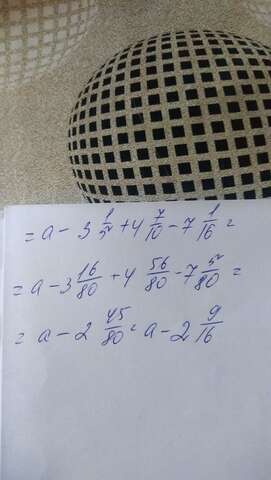 = a - 3 1/5 + 4 7/10 - 7 1/16 =
= a - 3 16/80 + 4 56/80 - 7 5/80 =
= a - 2 45/80 = a - 2 9/16